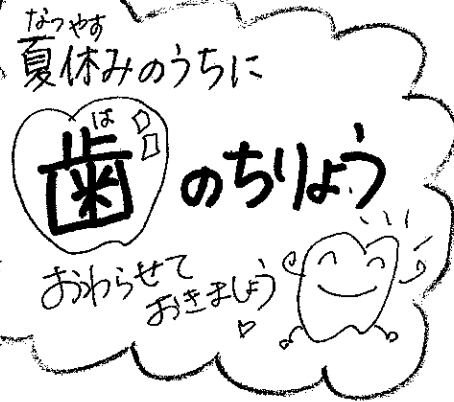 なつやす
夏休みのうちに
は
歯のちりょう
おわらせて
おきましょう